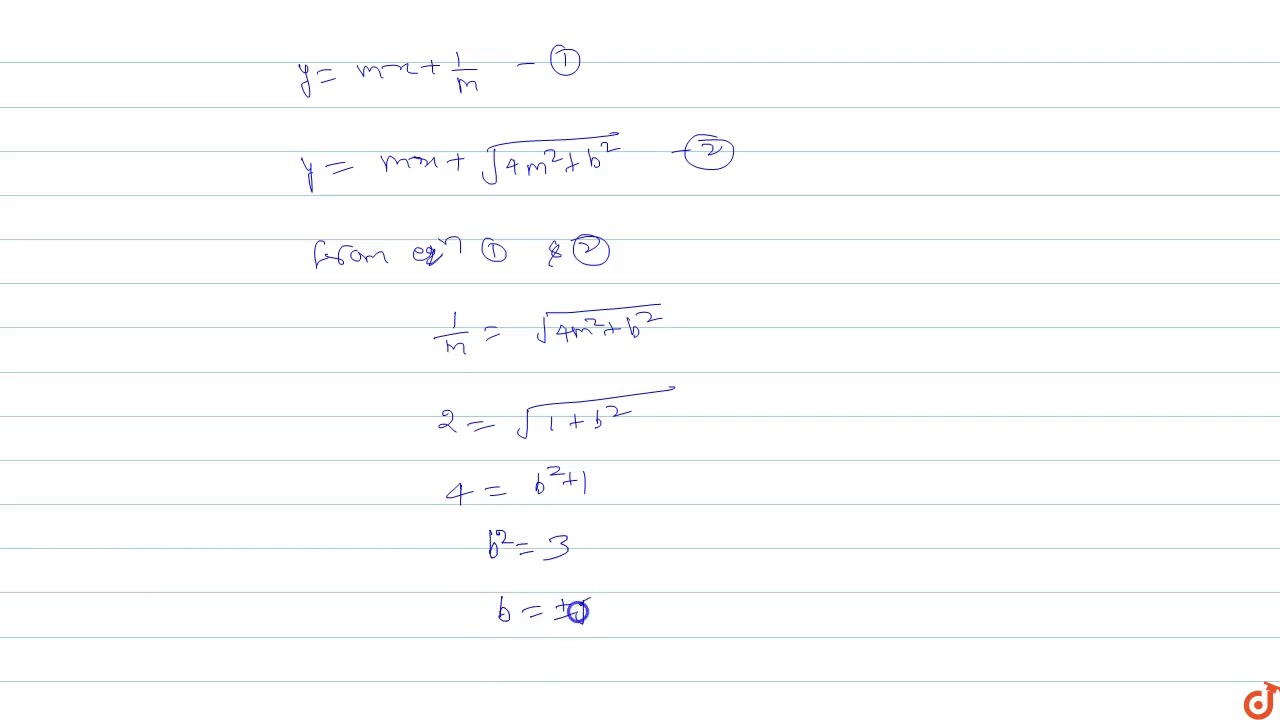 y = mx + 1/m - ①
y = mx + √(4m²+b²) - ②
from eqⁿ ① & ②
1/m = √(4m²+b²)
2 = √(1+b²)
4 = b²+1
b² = 3
b = ±